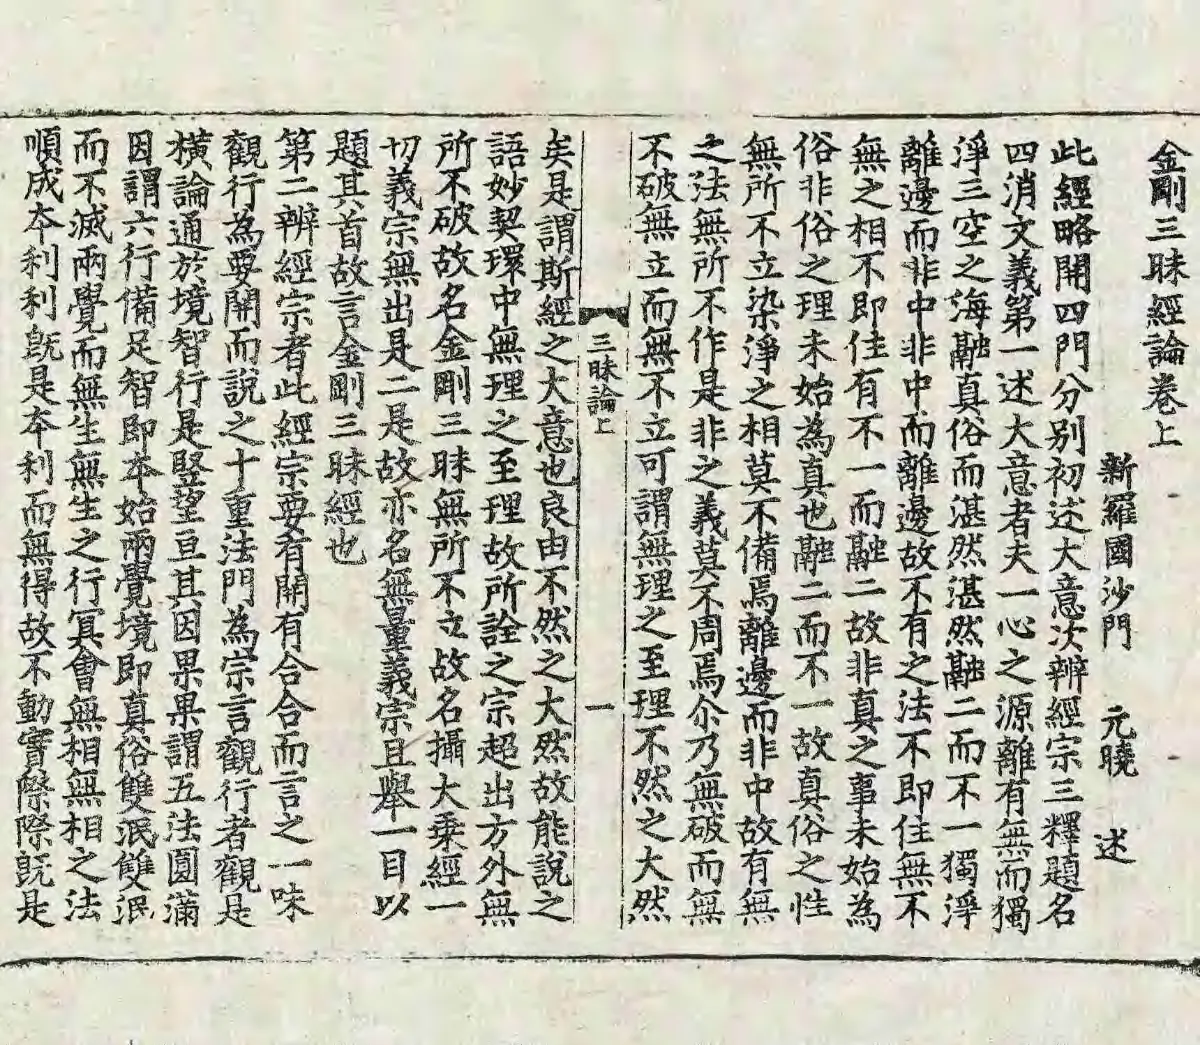 金剛三昧經論卷上
新羅國沙門 元曉 述
此經略開四門分別初述大意次辨經宗三釋題名
四消文義第一述大意者夫一心之源離有無而獨
淨三空之海融真俗而湛然湛然融二而不一獨淨
離邊而非中非中而離邊故不有之法不即住無不
無之相不即住有不一而融二故非真之事未始為
俗非俗之理未始為真也融二而不一故真俗之性
無所不立染淨之相莫不備焉離邊而非中故有無
之法無所不作是非之義莫不周焉尒乃無破而無
不破無立而無不立可謂無理之至理不然之大然
三昧論上 一
矣是謂斯經之大意也良由不然之大然故能說之
語妙契環中無理之至理故所詮之宗超出方外無
所不破故名金剛三昧無所不立故名攝大乗經一
切義宗無出是二是故亦名無量義宗且舉一目以
題其首故言金剛三昧經也
第二辨經宗者此經宗要有開有合合而言之一味
觀行為要開而說之十重法門為宗言觀行者觀是
橫論通於境智行是竪望亘其因果果謂五法圓滿
因謂六行備足智即本始兩覺境即真俗雙泯雙泯
而不滅兩覺而無生無生之行冥會無相無相之法
順成夲利利旣是夲利而無得故不動實際際旣是